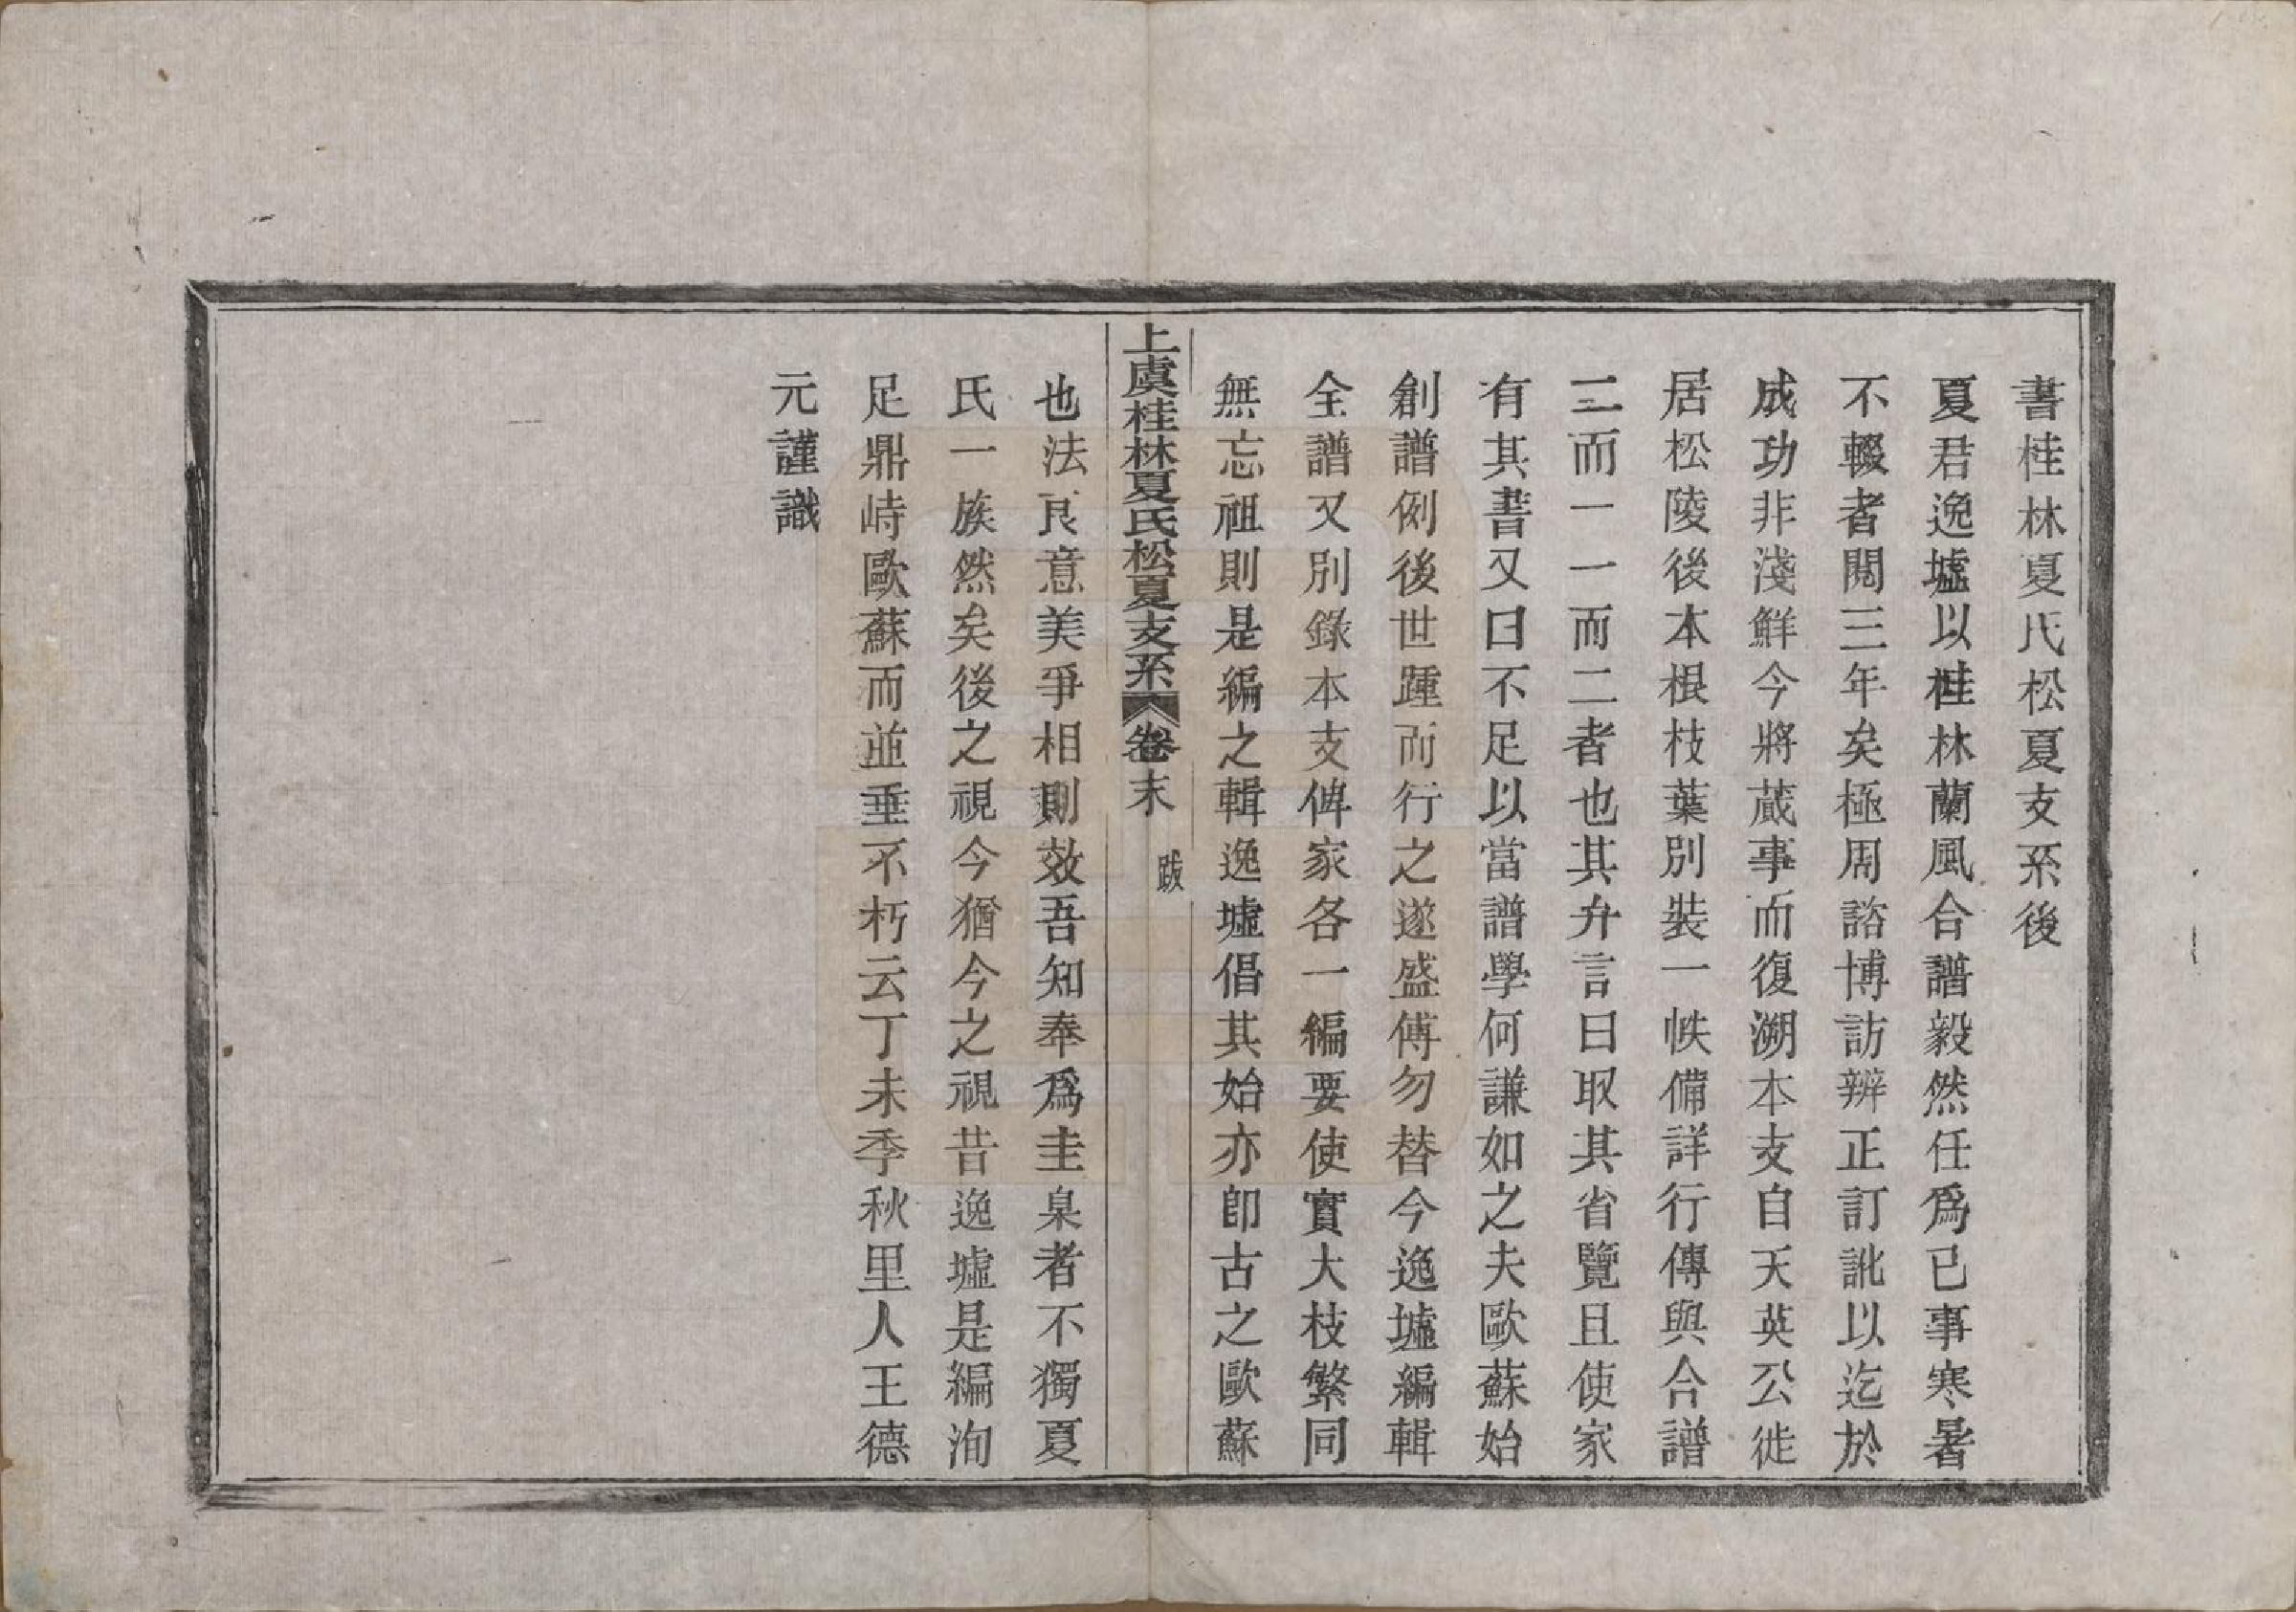 書桂林夏氏松夏支系後
夏君逸墟以桂林蘭風合譜毅然任爲已事寒暑
不輟者閱三年矣極周諮博訪辨正訂訛以迄於
成功非淺鮮今將蕆事而復溯本支自天英公徙
居松陵後本根枝葉別裝一帙備詳行傳與合譜
二而一一而二者也其弁言曰取其省覽且使家
有其書又曰不足以當譜學何謙如之夫歐蘇始
創譜例後世踵而行之遂盛傅勿替今逸墟編輯
全譜又別錄本支俾家各一編要使實大枝繁同
無忘祖則是編之輯逸墟倡其始亦卽古之歐蘇
上虞桂林夏氏松夏支系 卷末
跋
也法良意美爭相則效吾知奉爲圭臬者不獨夏
氏一族然矣後之視今猶今之視昔逸墟是編洵
足鼎峙歐蘇而並垂不朽云丁未季秋里人王德
元謹識